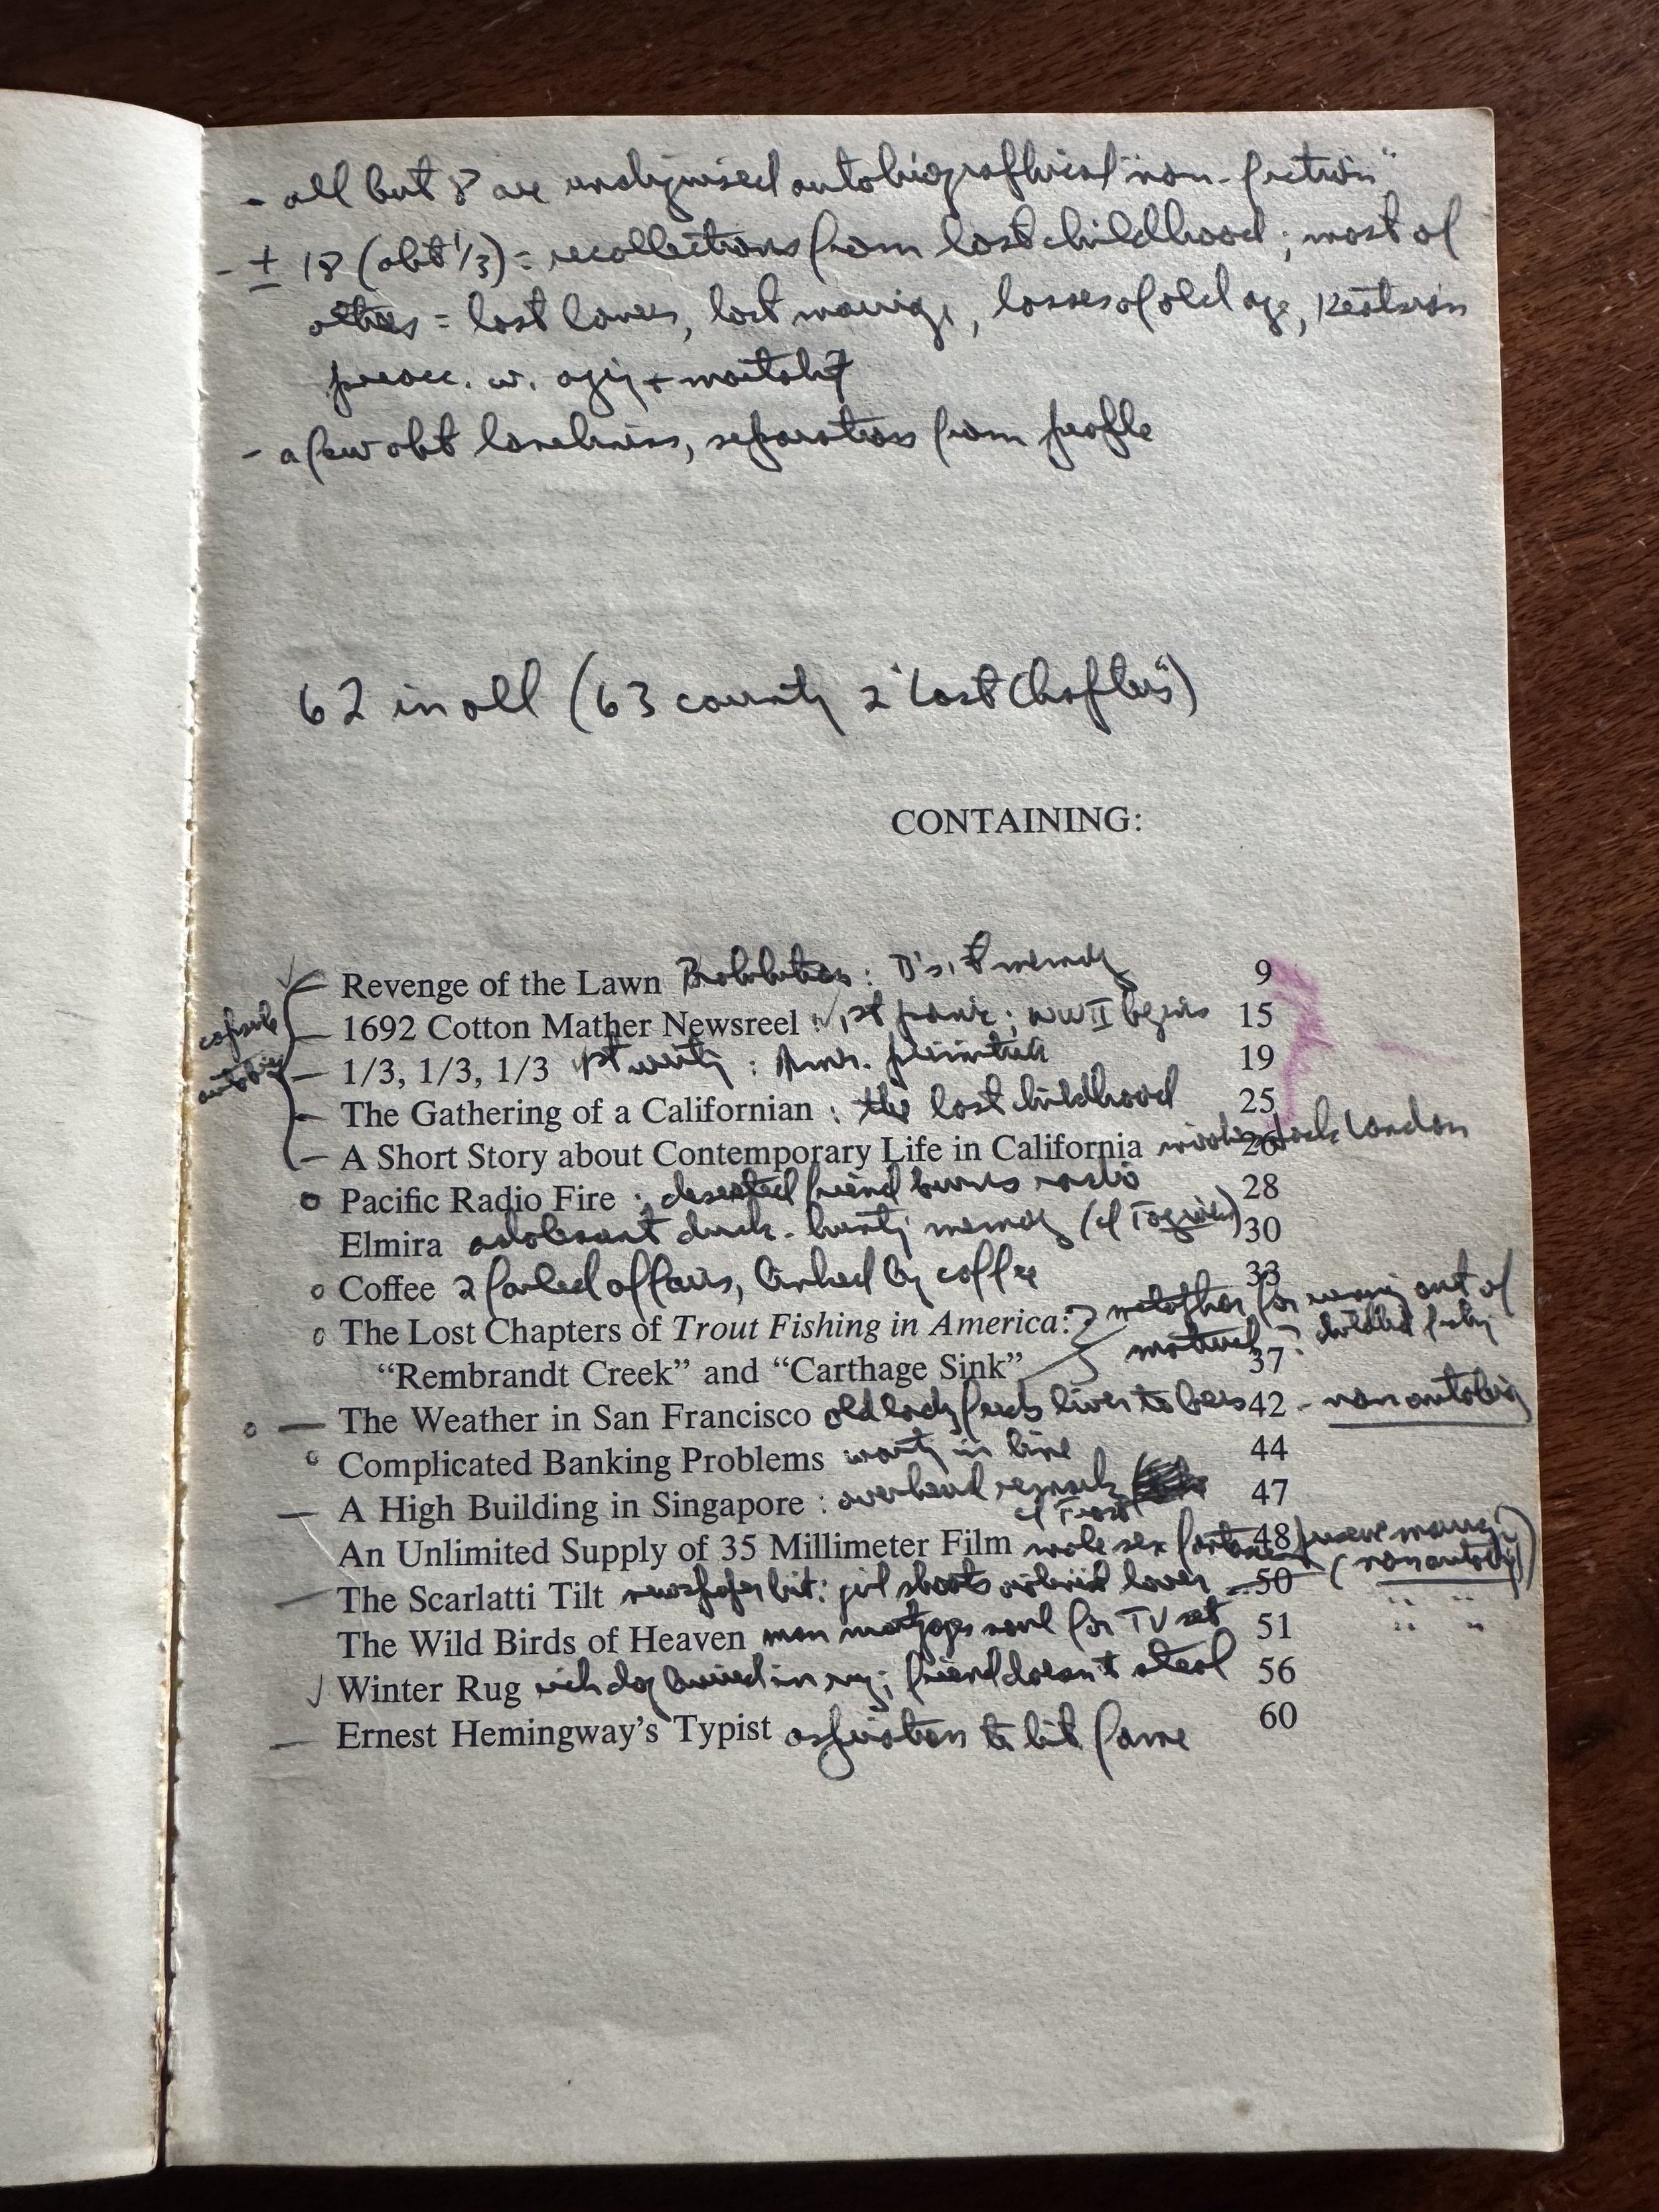 - all but 8 are undisguised autobiographical "non-fiction"
- ± 18 (abt 1/3) = recollections from lost childhood; most of
others = lost loves, lost marriage, losses of old age, Keatsian
preocc. w. aging + mortality
- a few abt loneliness, separations from people
62 in all (63 counting 2 "Lost Chapters")
CONTAINING:
Revenge of the Lawn Prohibition: B's 1st memory 9
1692 Cotton Mather Newsreel : 1st panic; WWII begins 15
1/3, 1/3, 1/3 1st writing : Amer. 19
The Gathering of a Californian : the lost childhood 25
A Short Story about Contemporary Life in California Jack London 26
capsule
autobiog
Pacific Radio Fire : deserted friend burns radio 28
Elmira adolescent duck-hunting memory (cf 30
Coffee 2 failed affairs, linked by coffee 33
The Lost Chapters of Trout Fishing in America: metaphor for running out of
"Rembrandt Creek" and "Carthage Sink" material 37
The Weather in San Francisco old lady feeds liver to bees 42 - non autobiog
Complicated Banking Problems waiting in line 44
A High Building in Singapore : overheard remark 47
An Unlimited Supply of 35 Millimeter Film male sex 48
The Scarlatti Tilt newspaper bit: girl shoots lover 50 (non autobiog)
The Wild Birds of Heaven man mortgages soul for TV set 51 " "
Winter Rug rich dog buried in rug; friend doesn't steal 56
Ernest Hemingway's Typist aspiration to lit fame 60